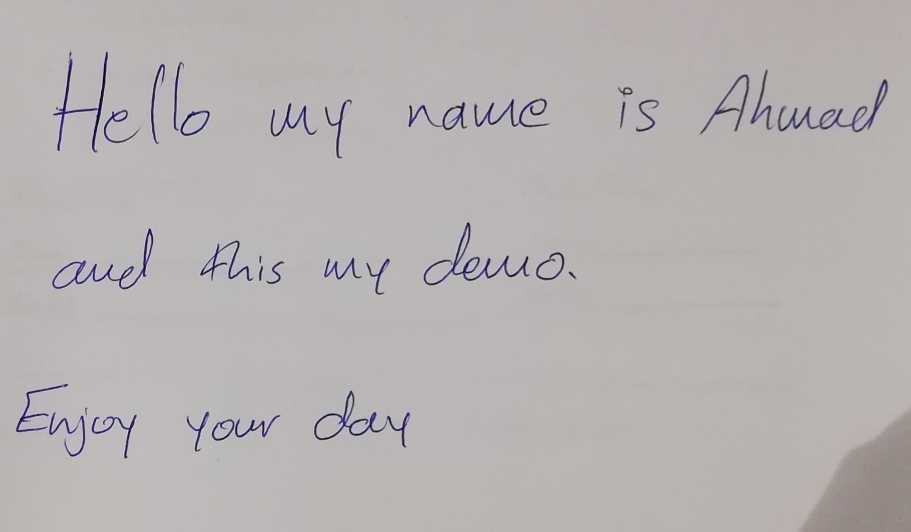 Hello my name is Ahmad
and this my demo.
Enjoy your day